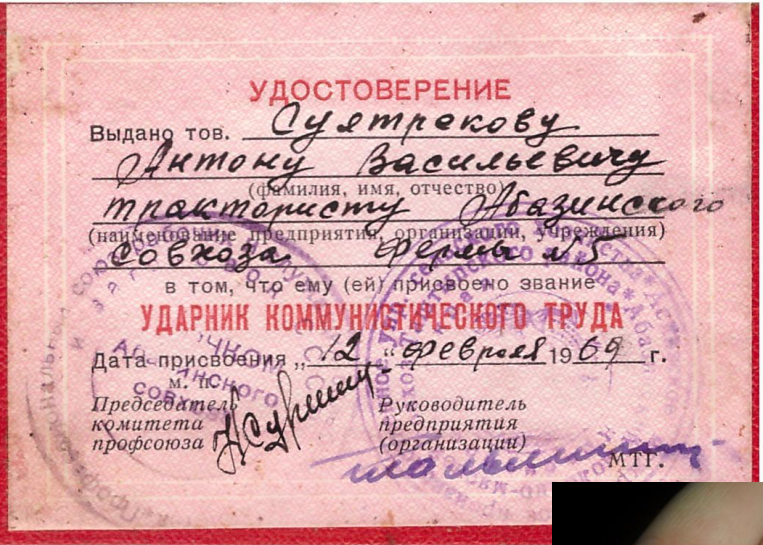 УДОСТОВЕРЕНИЕ
Выдано тов. Суятрекову
Антону Васильевичу
(фамилия, имя, отчество)
трактористу Абазинского
(наименование предприятия, организации, учреждения)
совхоза фермы №5
в том, что ему (ей) присвоено звание
УДАРНИК КОММУНИСТИЧЕСКОГО ТРУДА
Дата присвоения „12„ февраля 1969 г.
м. п.
Председатель комитета профсоюза
Руководитель предприятия (организации)
МТГ.